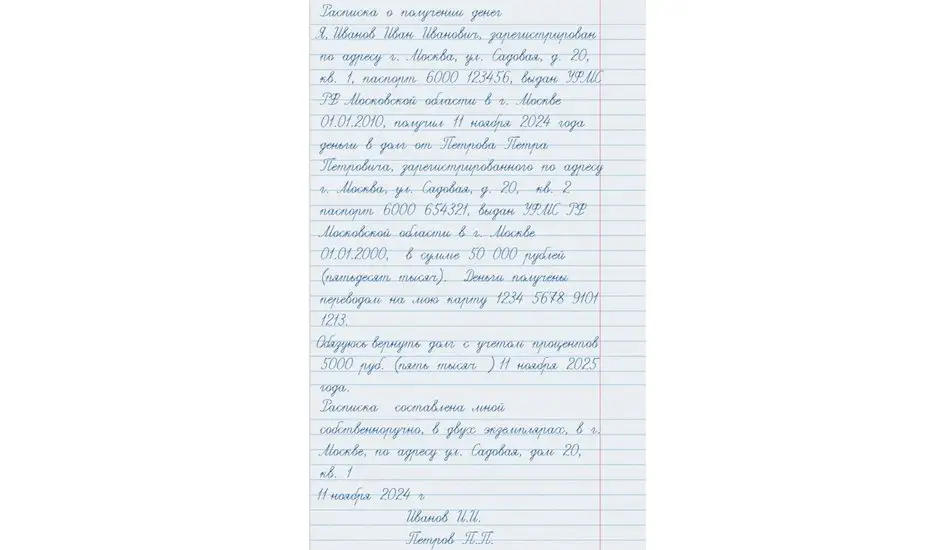 Расписка о получении денег
Я, Иванов Иван Иванович, зарегистрирован
по адресу г. Москва, ул. Садовая, д. 20,
кв. 1, паспорт 6000 123456, выдан УФМС
РФ Московской области в г. Москве
01.01.2010, получил 11 ноября 2024 года
деньги в долг от Петрова Петра
Петровича, зарегистрированного по адресу
г. Москва, ул. Садовая, д. 20, кв. 2
паспорт 6000 654321, выдан УФМС РФ
Московской области в г. Москве
01.01.2000, в сумме 50 000 рублей
(пятьдесят тысяч). Деньги получены
переводом на мою карту 1234 5678 9101
1213.
Обязуюсь вернуть долг с учетом процентов
5000 руб. (пять тысяч ) 11 ноября 2025
года.
Расписка составлена мной
собственноручно, в двух экземплярах, в г.
Москве, по адресу ул. Садовая, дом 20,
кв. 1
11 ноября 2024 г
Иванов И.И.
Петров П.П.